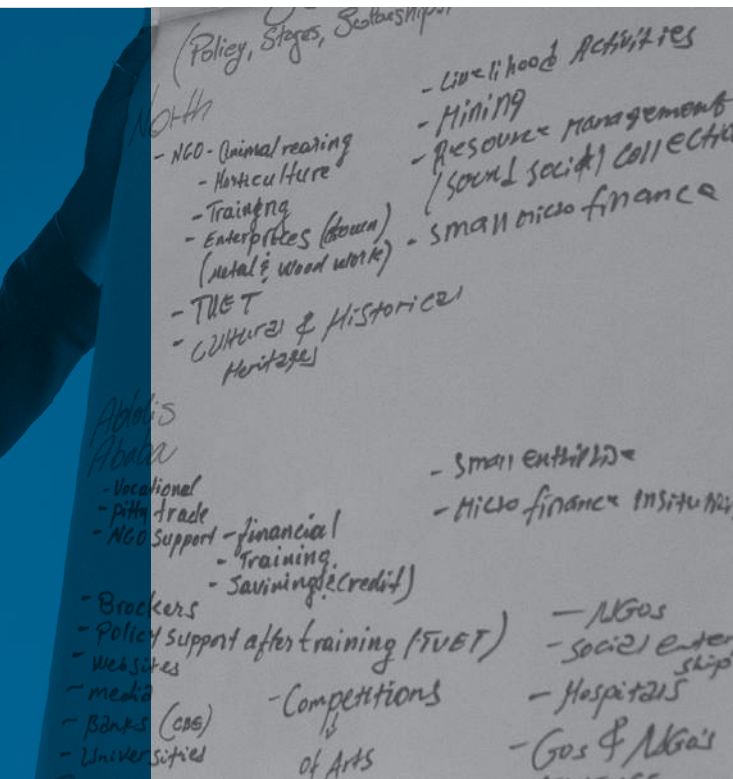 (Policy, Stages,
North
- NGO - Animal rearing
- Horticulture
- Training
- Enterprices
(Metal & wood work)
- TVET
- Cultural & Historical
Heritages
- Livelihood Activities
- Mining
- Resource Management
(sound social) collectio
- Small micro finance
Addis
Ababa
- Vocational
- pitty trade
- NGO Support - financial
- Training
- Savining (credit)
- Small
- Micro finance
- Brockers
- Policy support after training (TVET)
- Websites
- media
- Banks (CBE)
- Universities
- Competitions
of Arts
- NGOs
- Social enter
ship
- Hospitals
- Gos & NGO's